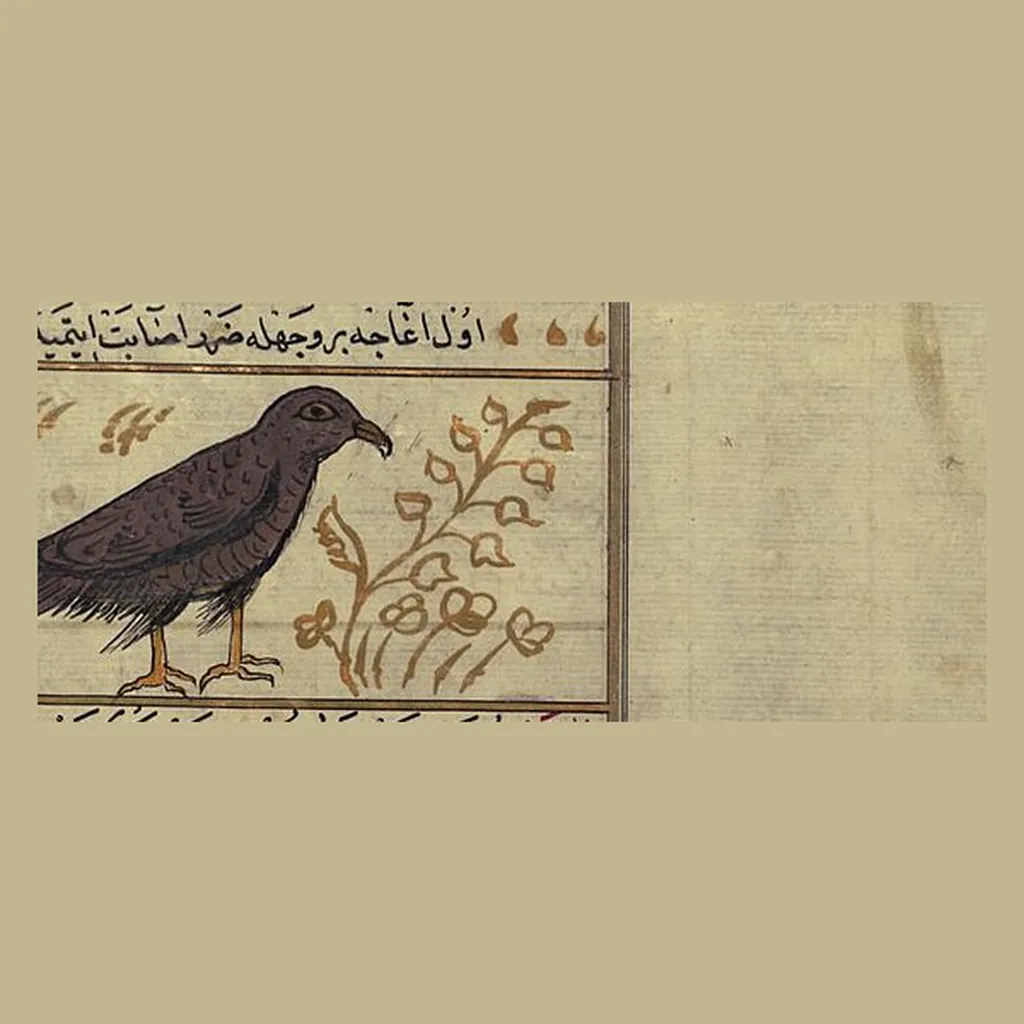 اول اغاجه بر وجهله ضرر اصابت ایتمیه